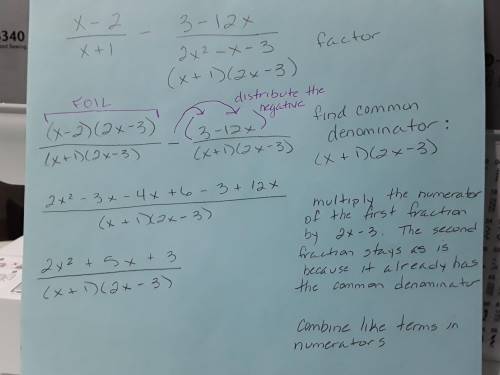 3340
x-2 / x+1 - 3-12x / 2x²-x-3 factor
(x+1)(2x-3)
FOIL distribute the negative
(x-2)(2x-3) / (x+1)(2x-3) - (3-12x) / (x+1)(2x-3)
find common
denominator:
(x+1)(2x-3)
2x²-3x-4x+6-3+12x / (x+1)(2x-3)
multiply the numerator
of the first fraction
by 2x-3. The second
fraction stays as is
because it already has
the common denominator
2x²+5x+3 / (x+1)(2x-3)
combine like terms in
numerators